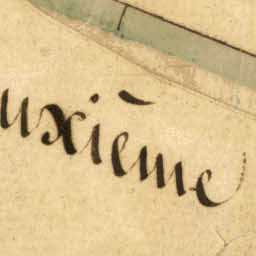 uxième